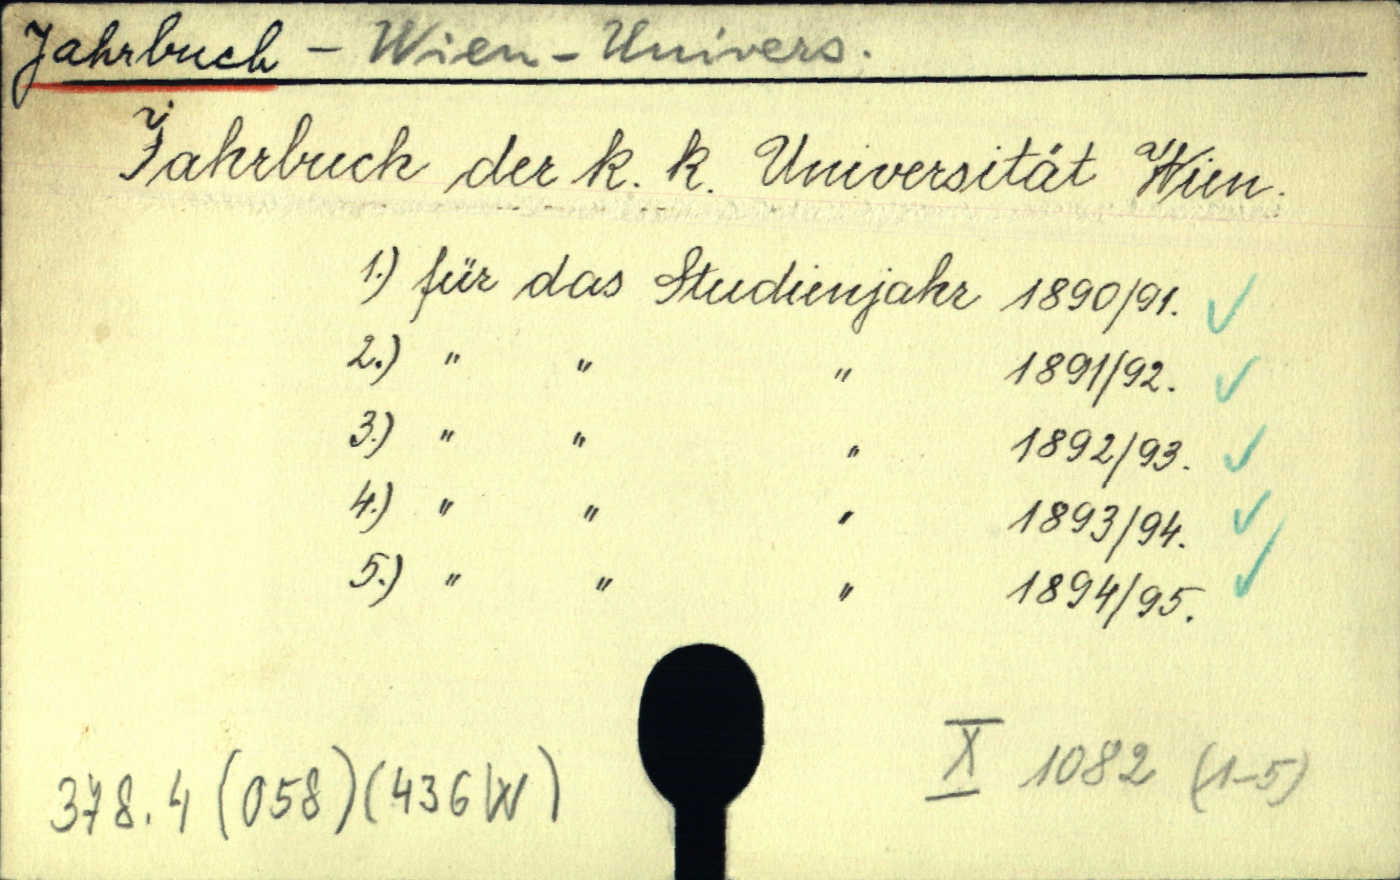 Jahrbuch - Wien - Univers.
Jahrbuch der k. k. Universität Wien.
1.) für das Studienjahr 1890/91. ✓
2.) " " " 1891/92. ✓
3.) " " " 1892/93. ✓
4.) " " " 1893/94. ✓
5.) " " " 1894/95. ✓
X 1082 (1-5)
378.4 (058)(436 W)